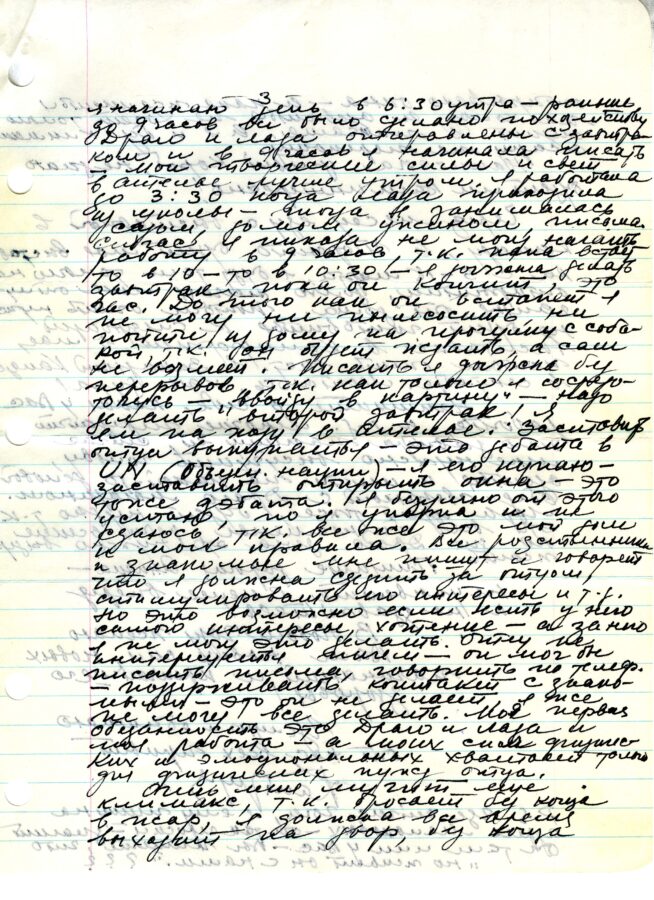 я начинаю день в 6:30 утра — раньше
до 9 часов все было сделано по хозяйству
Драго и Маза отправлены с завтра-
ком и в 9 часов я начинала писать
— мои творческие силы и свет
в ателье лучше утром. Я работала
до 3:30 когда Маза приходила
из школы — тогда я занималась
садом, домом, ужином, письма.
Сейчас я никогда не могу начать
работу в 9 часов, т.к. папа встает
то в 10 — то в 10:30 — я должна делать
завтрак, пока он кончит, это
час. До того как он встанет я
не могу ни пылесосить, ни
пойти из дому на прогулку с соба-
кой, т.к. он будет ждать, а сам
не возьмет. Писать я должна бы
перерывов т.к. как только я сосредо-
точусь — "Войду в картину" — надо
делать "второй завтрак". Я
ем на ходу в ателье. Заставить
отца выкупаться — это дебата в
UN (Объедин. нации) — я его
заставить открыть окна — это
тоже дебата. Я безумно от этого
устаю, но я упряма и не
сдаюсь, т.к. все же это мой дом
и мои правила. Все родственники
и знакомые мне пишут и говорят
что я должна следить за отцом,
стимулировать его интересы и т.д.
но это возможно если есть у него
самого интересы, хотение — а за него
я не могу это делать. Отцу не
интересуют — он мог бы
писать письма, говорить по телеф.
— поддерживать контакт с знако-
мыми — это он не делает. Я же
не могу все делать. Моя первая
обязанность это Драго и Маза и
моя работа — а моих сил физичес-
ких и эмоциональных хватает только
для физических нужд отца.
меня мучит еще
климакс, т.к. бросает бу когда
в жар, я должна все время
выходить на двор, бу когда